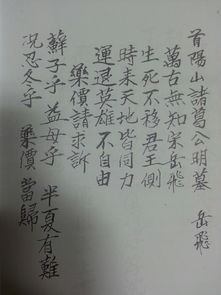 首陽山諸葛公明墓 岳飛
萬古無知宋岳飛
生死不移君王側
時来天地皆同力
運退英雄不自由
藥價請求訴
蘇子乎 益母乎 半夏有難
況忍冬乎 藥價當歸